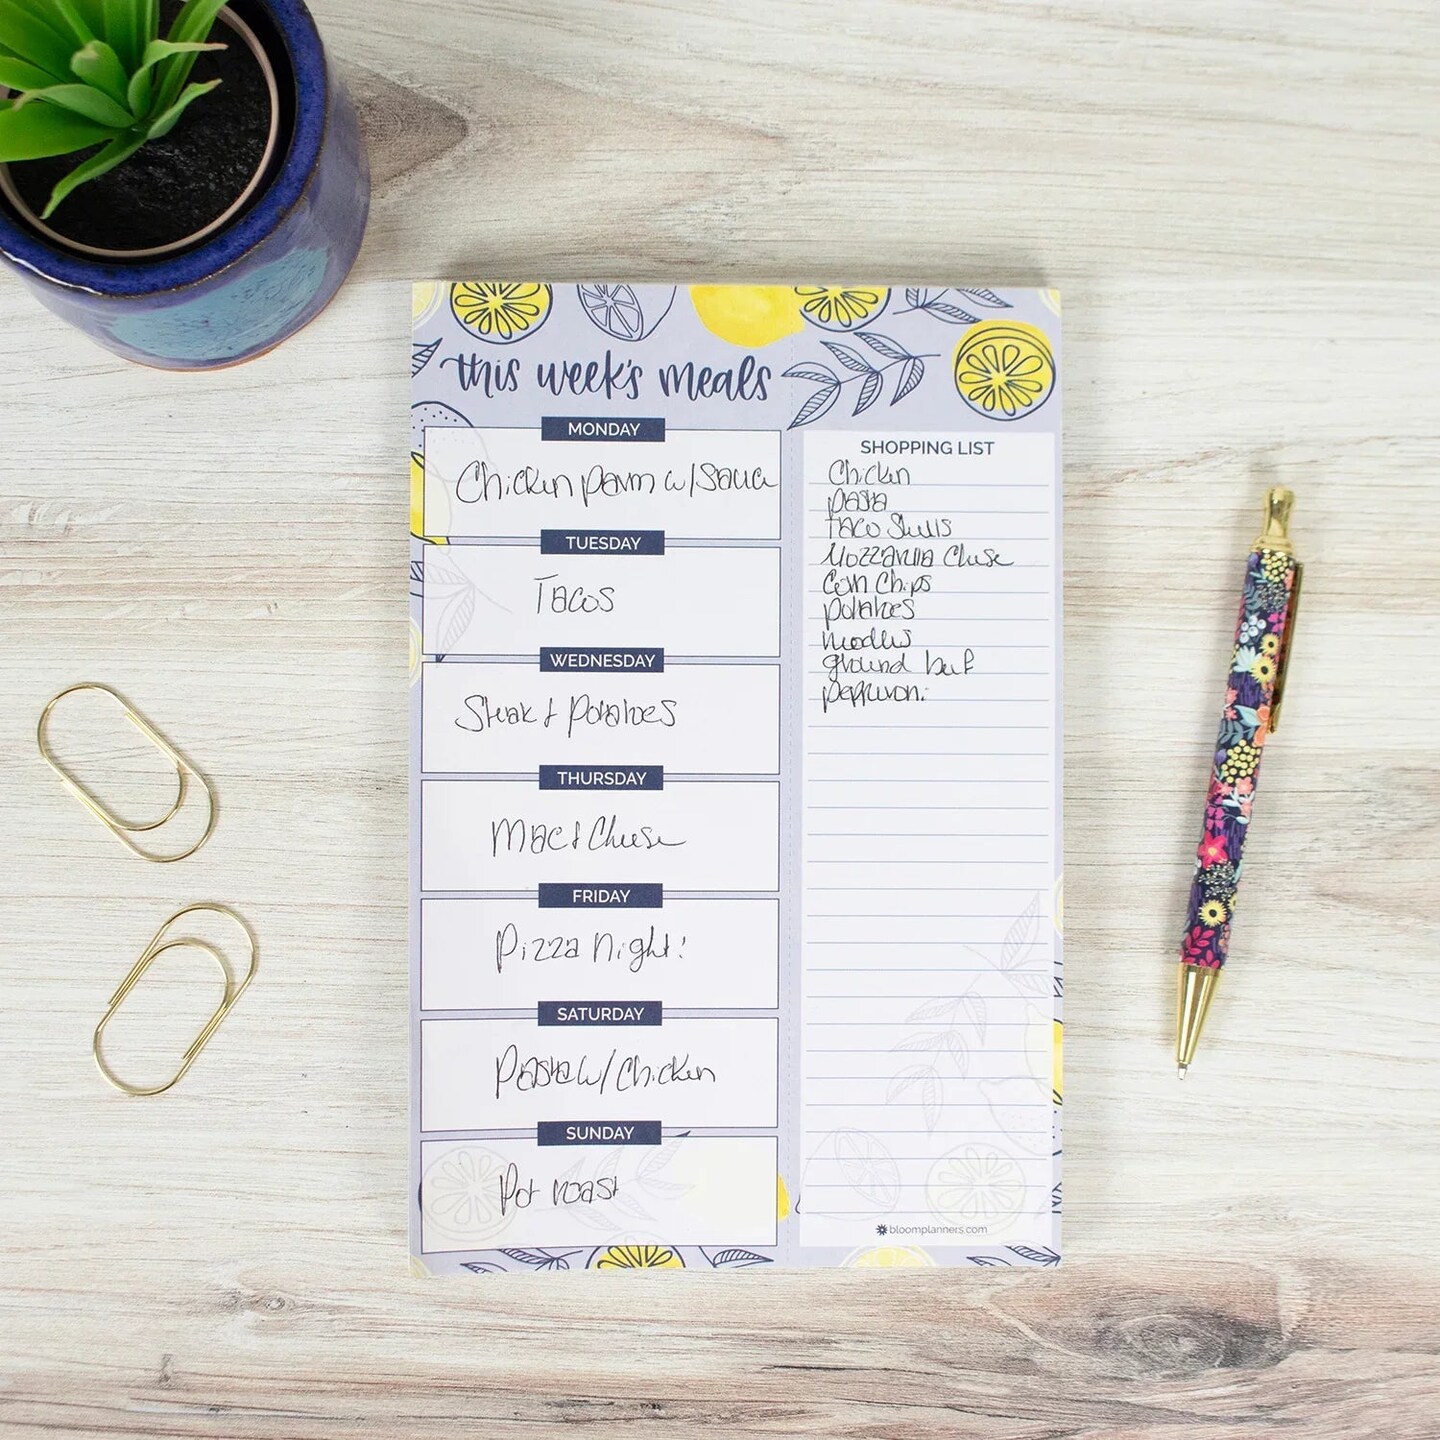 this week's meals
MONDAY
Chicken parm w/Sauce
TUESDAY
Tacos
WEDNESDAY
Steak & Potatoes
THURSDAY
Mac & Cheese
FRIDAY
Pizza Night!
SATURDAY
Pasta w/ Chicken
SUNDAY
Pot roast
SHOPPING LIST
Chicken
pasta
Taco Shells
Mozzarella Cheese
Corn Chips
potatoes
noodles
ground beef
pepperoni
bloomplanners.com